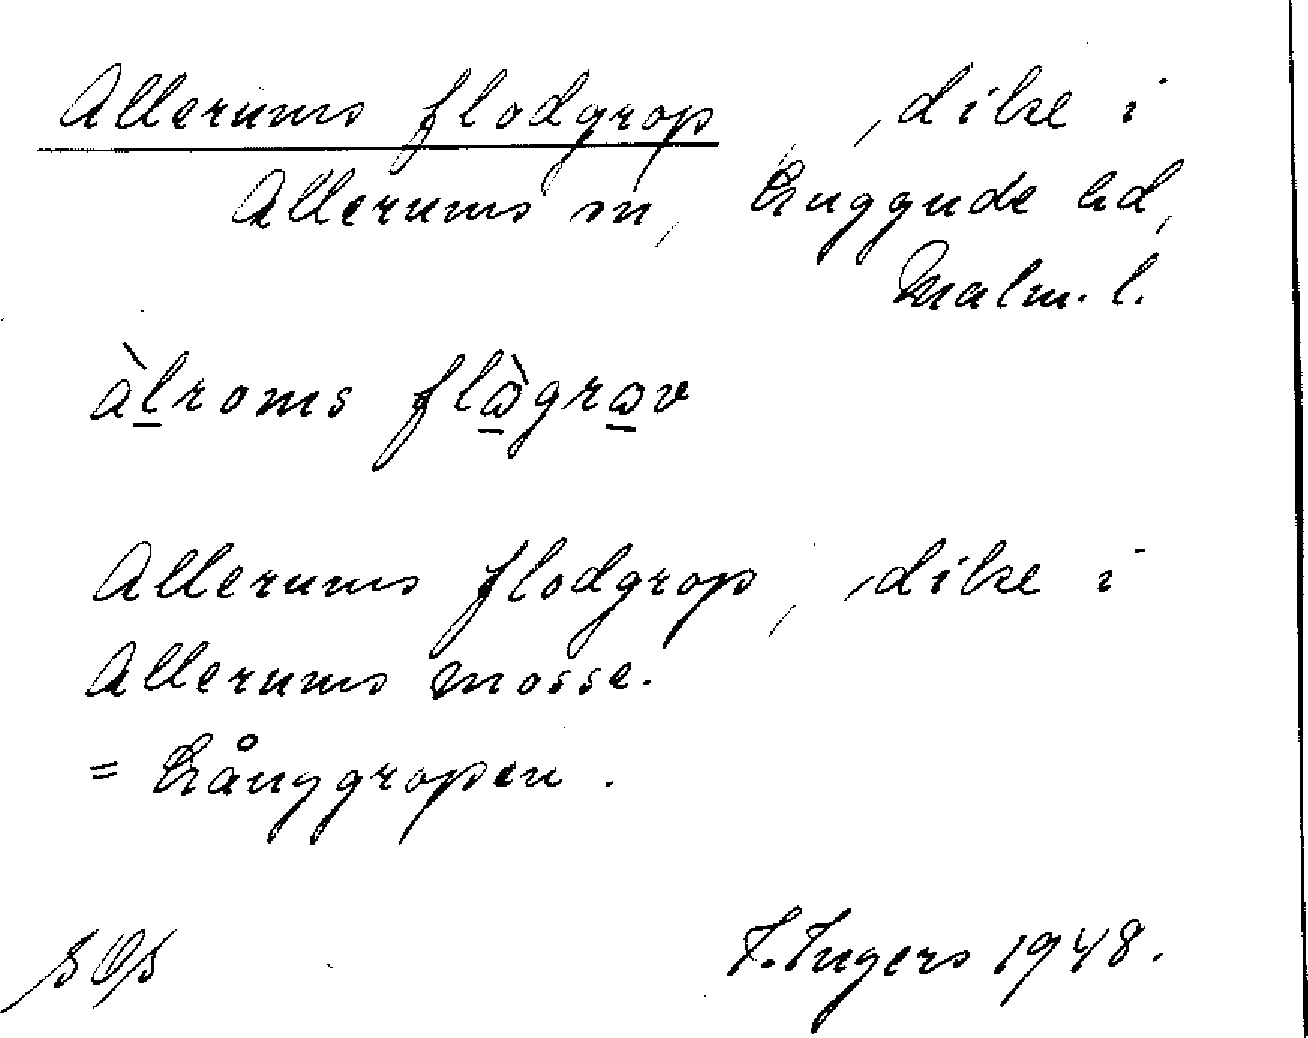 Allerums flodgrop, dike i
Allerums sn, Luggude hd,
Malm. l.
àlroms flàgrav
Allerums flodgrop, dike i
Allerums mosse.
= Långgropen.
I. Ingers 1948.